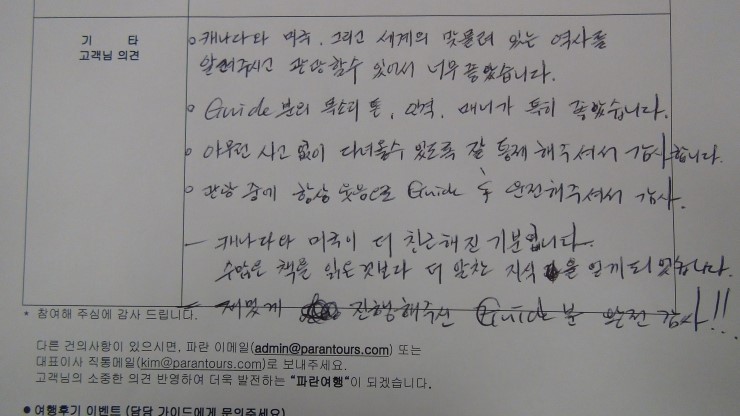 기 타
고객님 의견
○ 캐나다와 미국, 그리고 세계의 맞물려 있는 역사를
알려주시고 관광할수 있어서 너무 좋았습니다.
○ Guide 분의 목소리 톤, 인격, 매너가 특히 좋았습니다.
○ 아무런 사고 없이 다녀올수 있도록 잘 통제 해주셔서 감사합니다.
○ 관광 중에 항상 웃음으로 Guide 해주셔서 감사.
– 캐나다와 미국이 더 친근해진 기분입니다.
수많은 책을 읽은것보다 더 알찬 지식을 얻게 되었습니다.
– 재밌게 진행해주신 Guide 분 완전 감사!!
* 참여해 주심에 감사 드립니다.
다른 건의사항이 있으시면, 파란 이메일(admin@parantours.com) 또는
대표이사 직통메일(kim@parantours.com)로 보내주세요.
고객님의 소중한 의견 반영하여 더욱 발전하는 "파란여행"이 되겠습니다.
● 여행후기 이벤트 (담당 가이드에게 문의주세요)